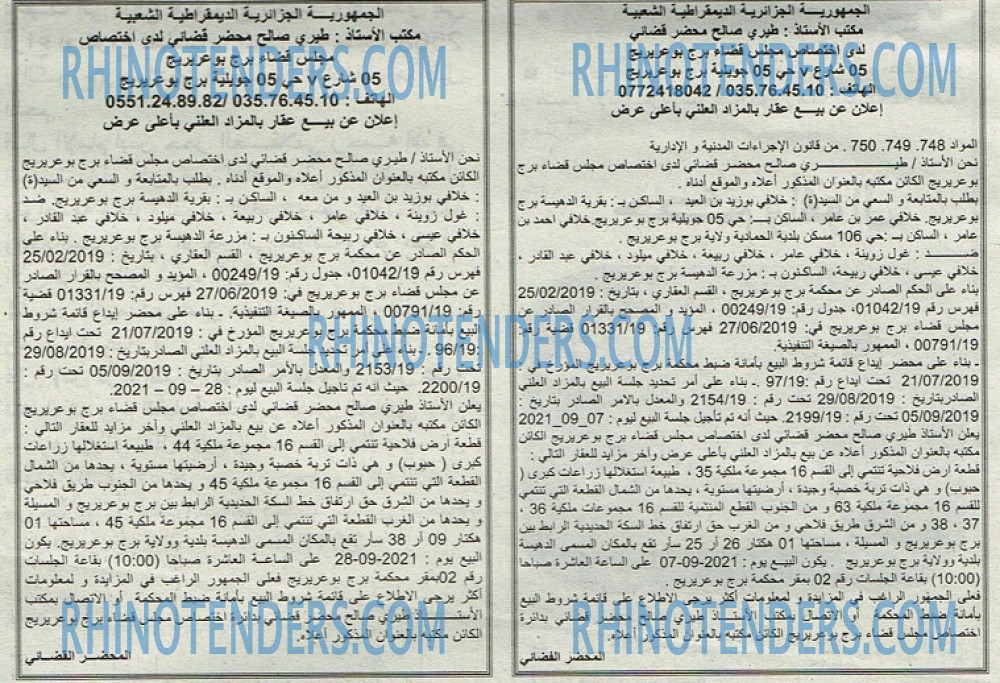 الجمهوريـــة الجزائرية الديمقراطية الشعبية
مكتب الأستاذ : طيري صالح محضر قضائي
لدى اختصاص مجلس قضاء برج بوعريريج
05 شارع ٧ حي 05 جويلية برج بوعريريج
الهاتف : 035.76.45.10 /0772418042
إعلان عن بيــع عقار بالمزاد العلني بأعلى عرض
المواد 748. 749. 750 . من قانون الإجراءات المدنية و الإدارية
نحن الأستاذ / طيـــــري صالح محضر قضائي لدى اختصاص مجلس قضاء برج
بوعريريج الكائن مكتبه بالعنوان المذكور أعلاه والموقع أدناه .
بطلب بالمتابعة و السعي من السيد(ة) : خلافي بوزيد بن العيد ، الساكن بـ : بقرية الدهيسة برج
بوعريريج. خلافي عمر بن عامر ، الساكن بـــ: حي 05 جويلية برج بوعريريج.خلافي احمد بن
عامر ، الساكن بـ :حي 106 مسكن بلدية الحمادية ولاية برج بوعريريج .
ضـــــد : غول زوينة ، خلافي عامر ، خلافي ربيعة ، خلافي ميلود ، خلافي عبد القادر ،
خلافي عيسى ، خلافي ربيحة، الساكنون بـ : مزرعة الدهيسة برج بوعريريج.
بناء على الحكم الصادر عن محكمة برج بوعريريج ، القسم العقاري ، بتاريخ : 25/02/2019
فهرس رقم 01042/19، جدول رقم: 00249/19 ، المؤيد و المصحح بالقرار الصادر عن
مجلس قضاء برج بوعريريج في: 27/06/2019 فهرس رقم: 01331/19 قضية رقم:
00791/19 ، الممهور بالصيغة التنفيذية.
- بناء على محضر إيداع قائمة شروط البيع بأمانة ضبط محكمة برج بوعريريج المؤرخ في :
21/07/2019 تحت ايداع رقم :97/19. ـ بناء على أمر تحديد جلسة البيع بالمزاد العلني
الصادربتاريخ : 29/08/2019 تحت رقم : 2154/19 والمعدل بالامر الصادر بتاريخ :
05/09/2019 تحت رقم : 2199/19. حيث أنه تم تأجيل جلسة البيع ليوم : 07_09_2021
يعلن الأستاذ طيري صالح محضر قضائي لدى اختصاص مجلس قضاء برج بوعريريج الكائن
مكتبه بالعنوان المذكور أعلاه عن بيع بالمزاد العلني بأعلى عرض وآخر مزايد للعقار التالي :
قطعة ارض فلاحية تنتمي إلى القسم 16 مجموعة ملكية 35 ، طبيعة استغلالها زراعات كبرى (
حبوب) و هي ذات تربة خصبة وجيدة ، أرضيتها مستوية ، يحدها من الشمال القطعة التي تنتمي
للقسم 16 مجموعة ملكية 63 و من الجنوب القطع المنتمية للقسم 16 مجموعات ملكية 36 ،
37 ، 38 و من الشرق طريق فلاحي و من الغرب حق ارتفاق خط السكة الحديدية الرابط بين
برج بوعريريج و المسيلة ، مساحتها 01 هكتار 26 آر 25 سآر تقع بالمكان المسمى الدهيسة
بلدية وولاية برج بوعريريج . يكون البيع يوم : 07-09-2021 على الساعة العاشرة صباحا
(10:00) بقاعة الجلسات رقم 02 بمقر محكمة برج بوعريريج .
فعلى الجمهور الراغب في المزايدة و لمعلومات أكثر يرجى الاطلاع على قائمة شروط البيع
بأمانة ضبط المحكمة أو الاتصال بمكتب الأستاذ طيري صالح محضر قضائي بدائرة
اختصاص مجلس قضاء برج بوعريريج الكائن مكتبه بالعنوان المذكور أعلاه.
المحضر القضائي
الجمهوريـــة الجزائرية الديمقراطية الشعبية
مكتب الأستاذ : طيري صالح محضر قضائي لدى اختصاص
مجلس قضاء برج بوعريريج
05 شارع ٧ حي 05 جويلية برج بوعريريج
الهاتف : 035.76.45.10 /0551.24.89.82
إعلان عن بيـــع عقار بالمزاد العلني بأعلى عرض
نحن الأستاذ / طيري صالح محضر قضائي لدى اختصاص مجلس قضاء برج بوعريريج
الكائن مكتبه بالعنوان المذكور أعلاه والموقع أدناه . بطلب بالمتابعة و السعي من السيد(ة)
: خلافي بوزيد بن العيد و من معه ، الساكن بـ : بقرية الدهيسة برج بوعريريج. ضـد
: غول زوينة ، خلافي عامر ، خلافي ربيعة ، خلافي ميلود ، خلافي عبد القادر ،
خلافي عيسى ، خلافي ربيحة الساكنون بـ : مزرعة الدهيسة برج بوعريريج . بناء على
الحكم الصادر عن محكمة برج بوعريريج ، القسم العقاري ، بتاريخ : 25/02/2019
فهرس رقم 01042/19، جدول رقم: 00249/19 ، المؤيد و المصحح بالقرار الصادر
عن مجلس قضاء برج بوعريريج في: 27/06/2019 فهرس رقم: 01331/19 قضية
رقم: 00791/19 ، الممهور بالصيغة التنفيذية. ـ بناء على محضر إيداع قائمة شروط
البيع بأمانة ضبط محكمة برج بوعريريج المؤرخ في : 21/07/2019 تحت ايداع رقم
:96/19 . ـ بناء على أمر تحديد جلسة البيع بالمزاد العلني الصادربتاريخ : 29/08/2019
تحت رقم : 2153/19 والمعدل بالأمر الصادر بتاريخ : 05/09/2019 تحت رقم :
2200/19. حيث انه تم تاجيل جلسة البيع ليوم : 28 – 09 – 2021.
يعلن الأستاذ طيري صالح محضر قضائي لدى اختصاص مجلس قضاء برج بوعريريج الكائن
مكتبه بالعنوان المذكور أعلاه عن بيع بالمزاد العلني وآخر مزايد للعقار التالي :
قطعة ارض فلاحية تنتمي إلى القسم 16 مجموعة ملكية 44 ، طبيعة استغلالها زراعات
كبرى ( حبوب) و هي ذات تربة خصبة وجيدة ، أرضيتها مستوية ، يحدها من الشمال
القطعة التي تنتمي إلى القسم 16 مجموعة ملكية 45 و يحدها من الجنوب طريق فلاحي
و يحدها من الشرق حق ارتفاق خط السكة الحديدية الرابط بين برج بوعريريج و المسيلة
و يحدها من الغرب القطعة التي تنتمي إلى القسم 16 مجموعة ملكية 45 ، مساحتها 01
هكتار 09 آر 38 سآر تقع بالمكان المسمى الدهيسة بلدية وولاية برج بوعريريج. يكون
البيع يوم : 28-09-2021 على الساعـة العاشرة صباحا (10:00) بقاعة الجلسات
رقم 02بمقر محكمة برج بوعريريج فعلى الجمهور الراغب في المزايدة و لمعلومات
أكثر يرجى الاطلاع على قائمة شروط البيع بأمانة ضبط المحكمة أو الاتصال بمكتب
الأستـــــاذ طيري صالح محضر قضائي بدائرة اختصاص مجلس قضاء برج بوعريريج
الكائن مكتبه بالعنوان المذكور أعلاه.
المحضـر القضـائي
RHINOTENDERS.COM
RHINOTENDERS.COM
RHINOTENDERS.COM
RHINOTENDERS.COM
RHINOTENDERS.COM